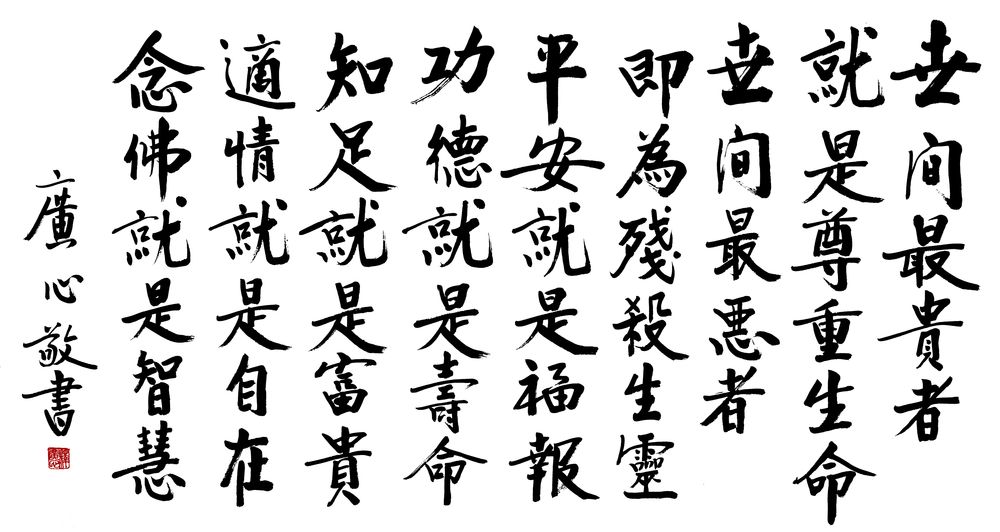 世间最貴者
就是尊重生命
世间最惡者
即為殘殺生靈
平安就是福報
功德就是壽命
知足就是富貴
適情就是自在
念佛就是智慧
廣心敬書